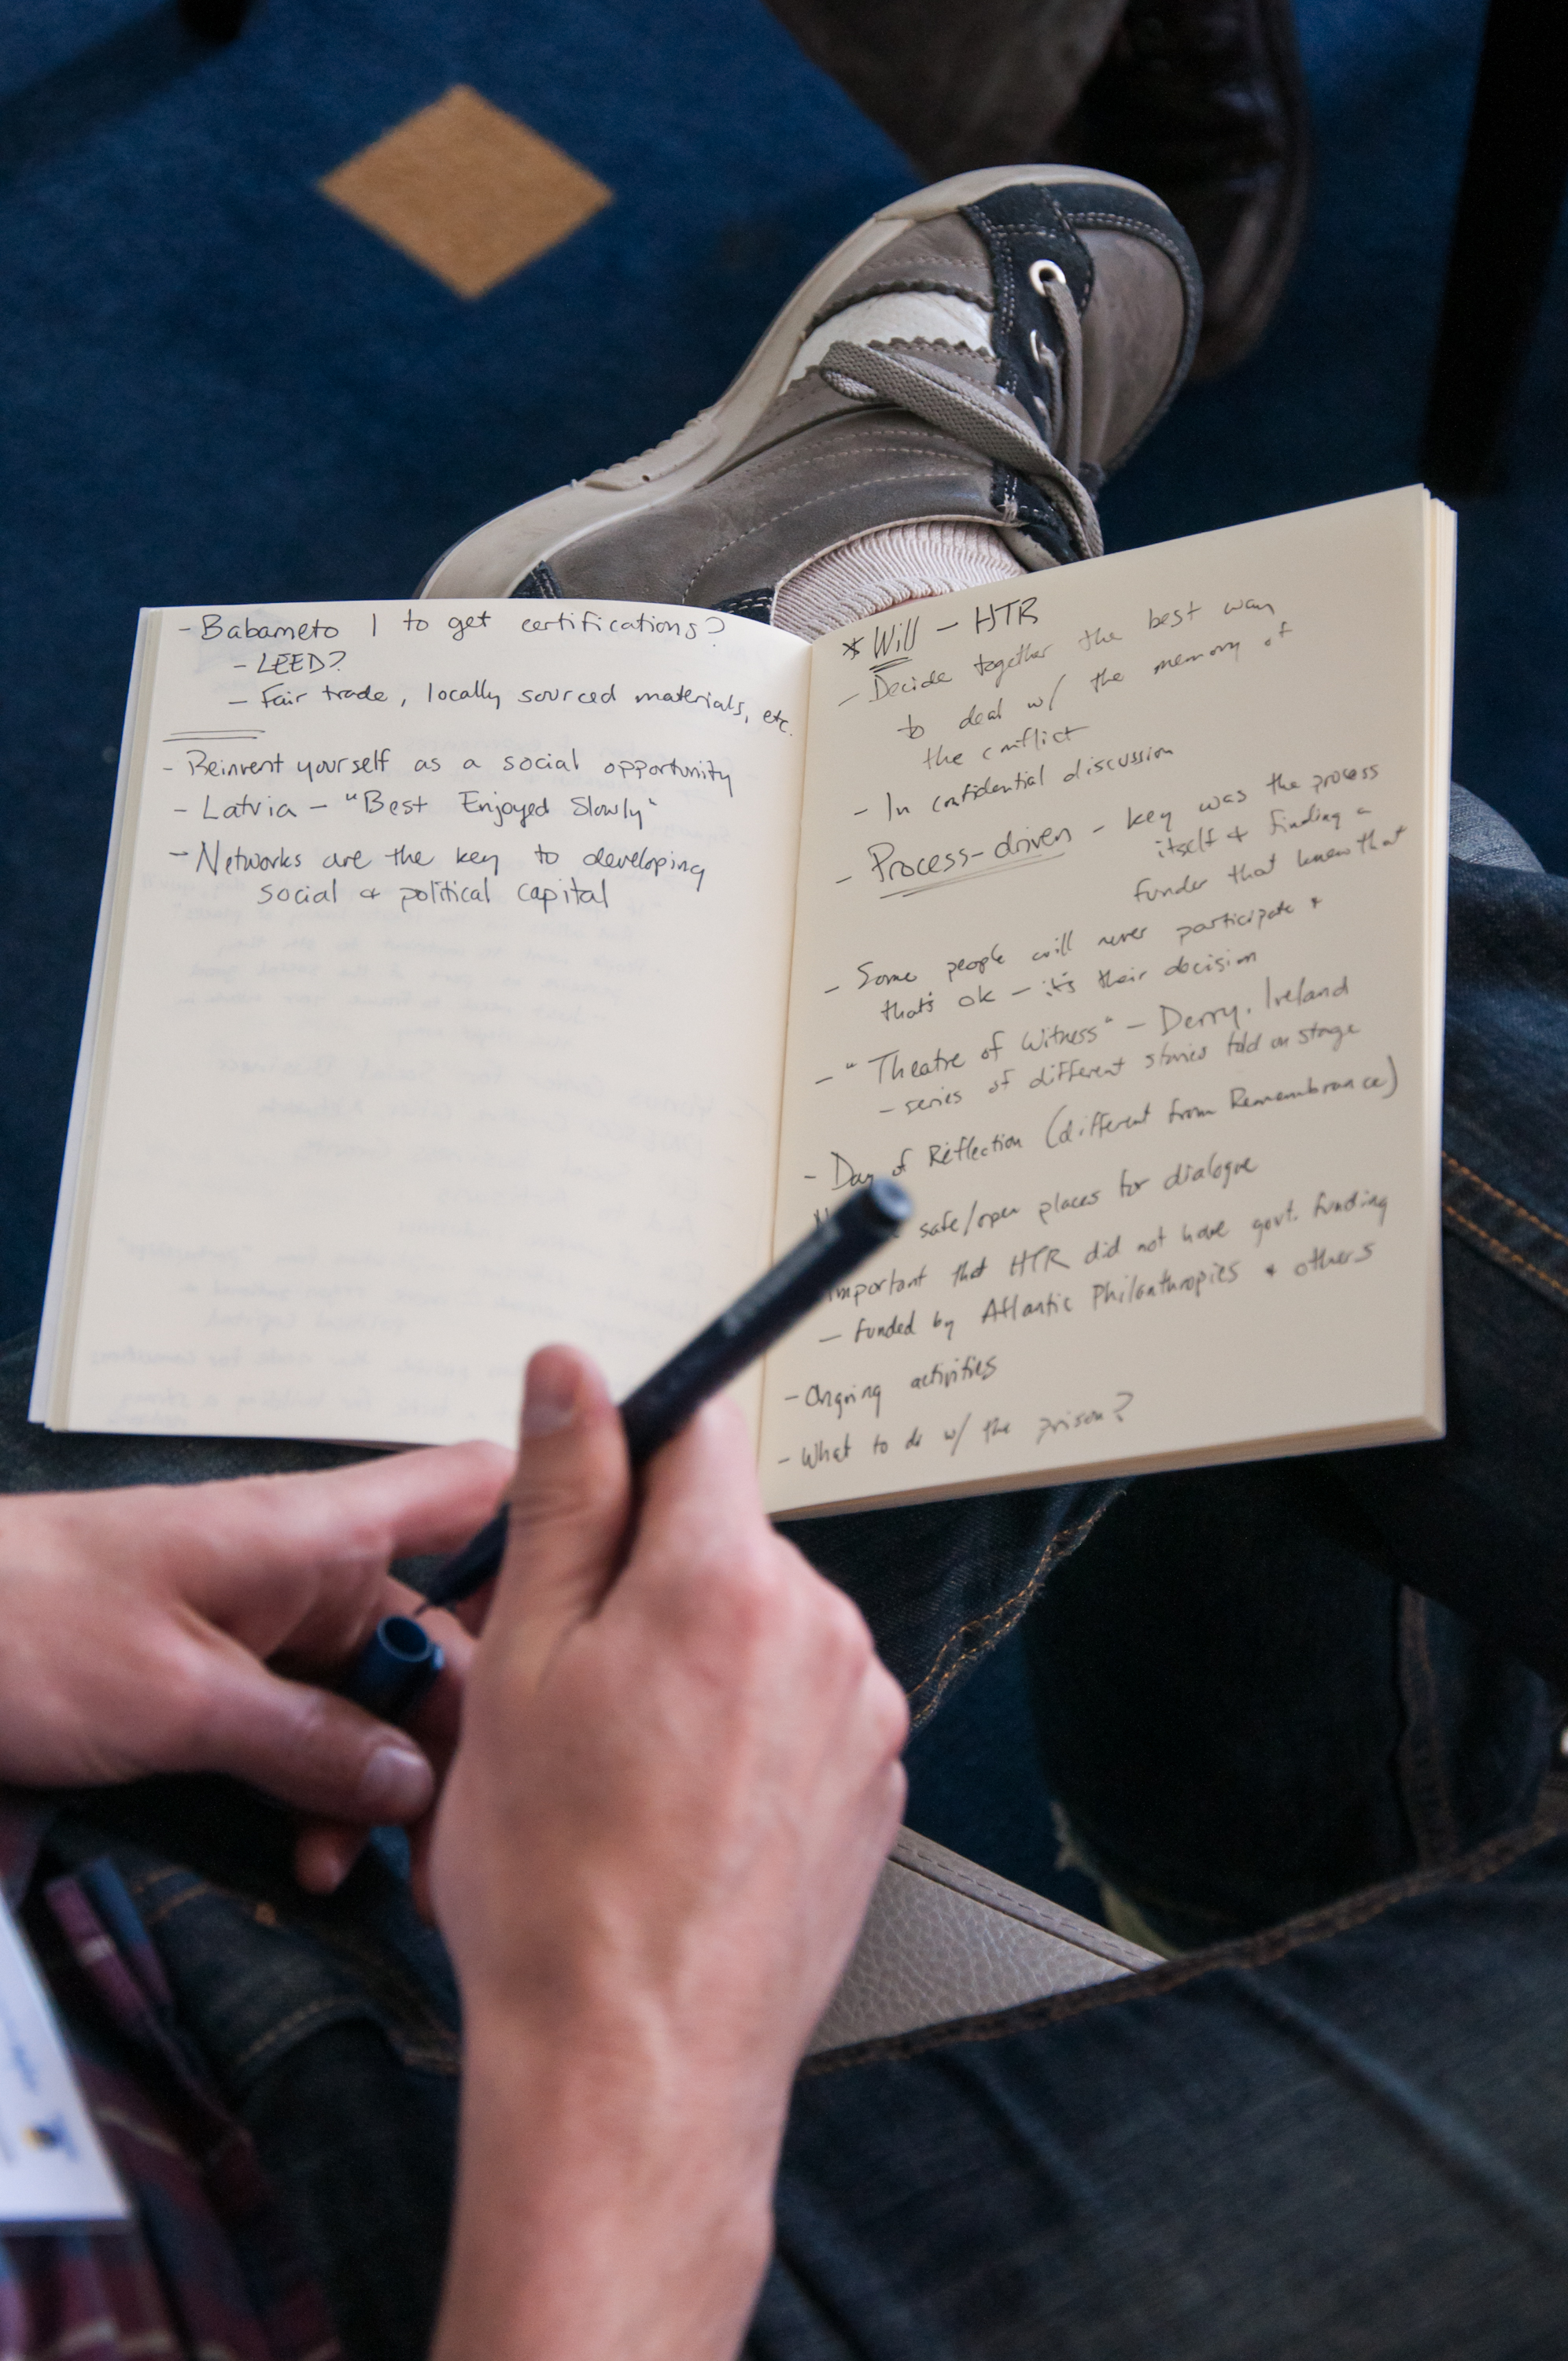 - Babameto 1 to get certifications?
- LEED?
- Fair trade, locally sourced materials, etc.
- Reinvent yourself as a social opportunity
- Latvia - "Best Enjoyed Slowly"
- Networks are the key to developing
social & political capital
* Will - HTR
- Decide together the best way
to deal w/ the memory of
the conflict
- In confidential discussion
- Process-driven - key was the process
itself & finding a
funder that knew that
- Some people will never participate &
that's ok - it's their decision
- "Theatre of Witness" - Derry, Ireland
- series of different stories told on stage
- Day of Reflection (different from Remembrance)
safe/open places for dialogue
important that HTR did not have govt. funding
- funded by Atlantic Philanthropies & others
- Ongoing activities
- What to do w/ the prison?